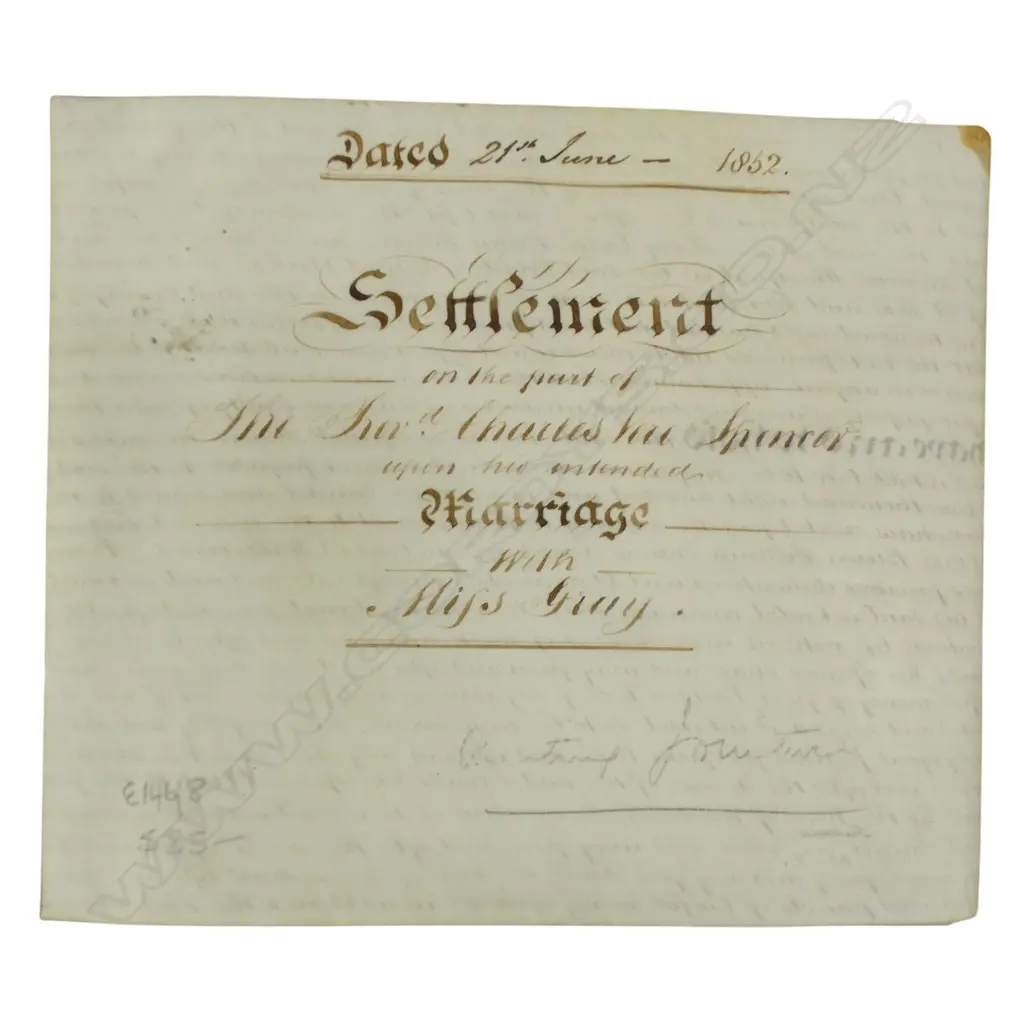 Dated 21st. June — 1852.
Settlement
on the part of
The Revd. Charles Vere Spencer
upon his intended
Marriage
with
Miss Gray.
E146/8
£25-